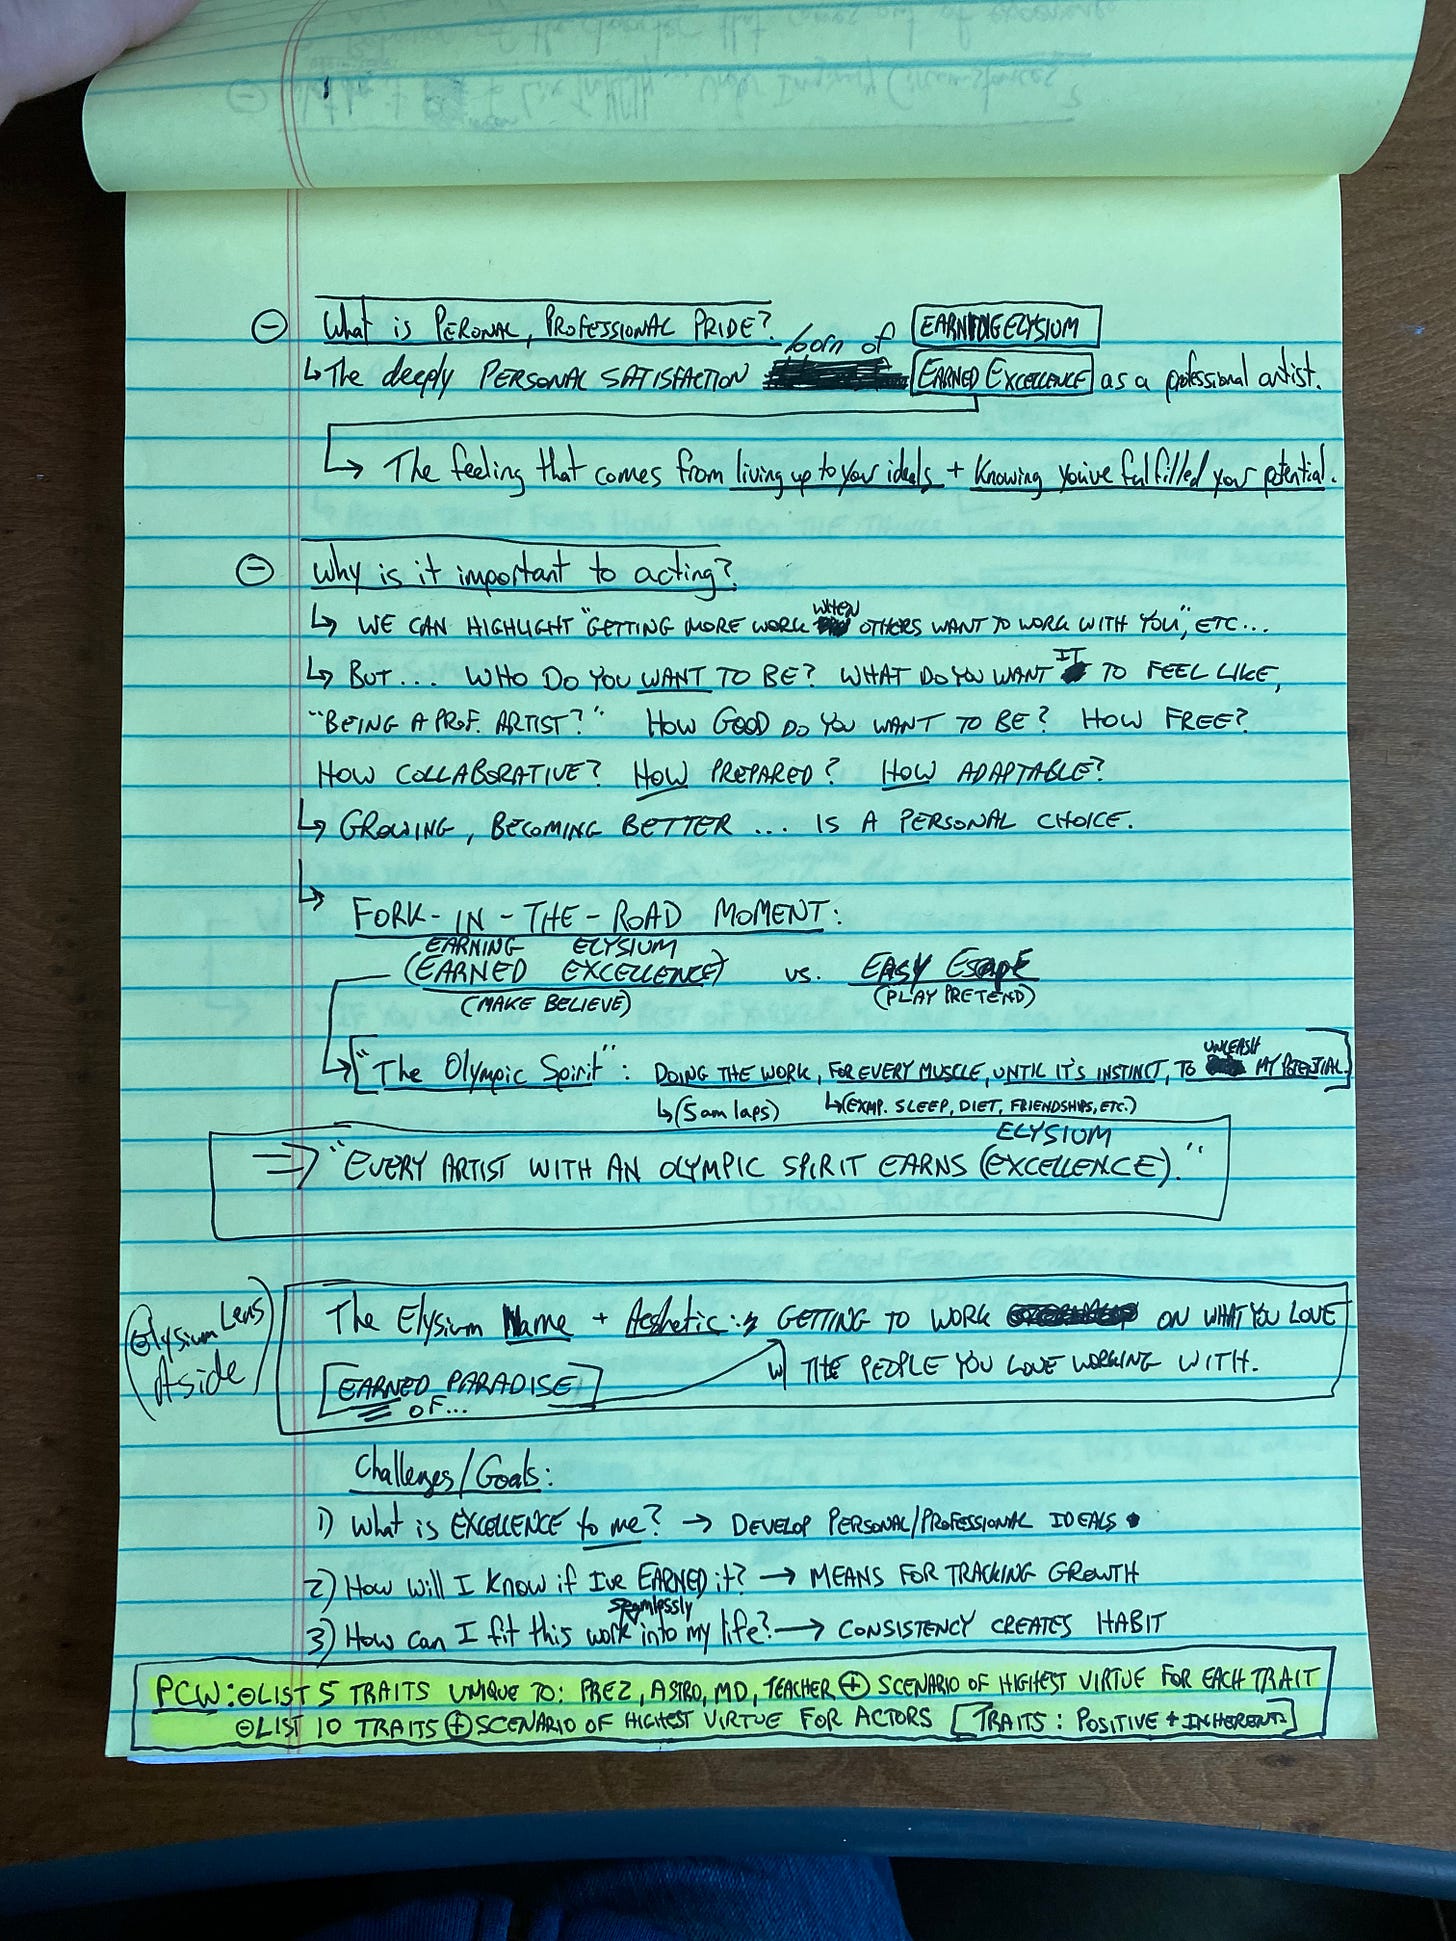 ⊖ What is PERONAL, PROFESSIONAL PRIDE?
EARNING ELYSIUM
↳ The deeply PERSONAL SATISFACTION born of EARNED EXCELLENCE as a professional artist.
↳ The feeling that comes from living up to your ideals + Knowing you've fulfilled your potential.
⊖ Why is it important to acting?
↳ WE CAN HIGHLIGHT "GETTING MORE WORK WHEN OTHERS WANT TO WORK WITH YOU", ETC...
↳ BUT... WHO DO YOU WANT TO BE? WHAT DO YOU WANT IT TO FEEL LIKE,
"BEING A PROF. ARTIST?" HOW GOOD DO YOU WANT TO BE? HOW FREE?
HOW COLLABORATIVE? HOW PREPARED? HOW ADAPTABLE?
↳ GROWING, BECOMING BETTER ... IS A PERSONAL CHOICE.
↳ FORK-IN-THE-ROAD MOMENT:
EARNING ELYSIUM
(EARNED EXCELLENCE) vs. EASY ESCAPE
(MAKE BELIEVE) (PLAY PRETEND)
↳ ["The Olympic Spirit": DOING THE WORK, FOR EVERY MUSCLE, UNTIL IT'S INSTINCT, TO UNLEASH MY POTENTIAL]
↳ (5am laps) ↳ (EXMP. SLEEP, DIET, FRIENDSHIPS, ETC.)
ELYSIUM
⇒ "EVERY ARTIST WITH AN OLYMPIC SPIRIT EARNS (EXCELLENCE)."
(Elysium Lens Aside)
The Elysium Name + Aeshetic: GETTING TO WORK ON WHAT YOU LOVE
w/ THE PEOPLE YOU LOVE WORKING WITH.
[EARNED PARADISE]
OF...
Challenges/Goals:
1) What is EXCELLENCE to me? → DEVELOP PERSONAL/PROFESSIONAL IDEALS
2) How will I know if I've EARNED it? → MEANS FOR TRACKING GROWTH
3) How can I fit this work seamlessly into my life? → CONSISTENCY CREATES HABIT
PCW: ⊖ LIST 5 TRAITS UNIQUE TO: PREZ, ASTRO, MD, TEACHER ⊕ SCENARIO OF HIGHEST VIRTUE FOR EACH TRAIT
⊖ LIST 10 TRAITS ⊕ SCENARIO OF HIGHEST VIRTUE FOR ACTORS [TRAITS: POSITIVE + INHERENT]